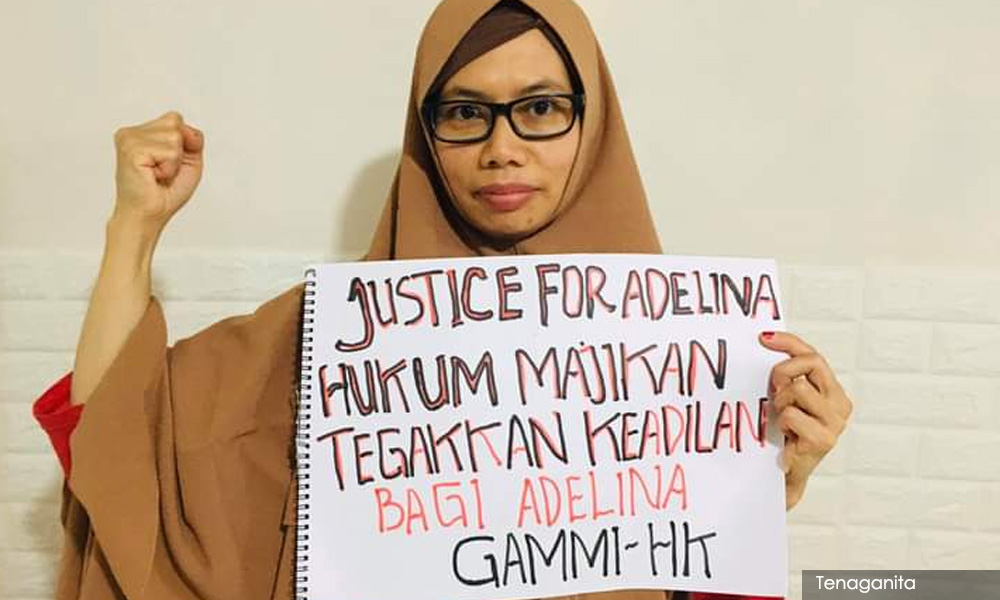 JUSTICE FOR ADELINA
HUKUM MAJIKAN
TEGAKKAN KEADILAN
BAGI ADELINA
GAMMI-HK
Tenaganita